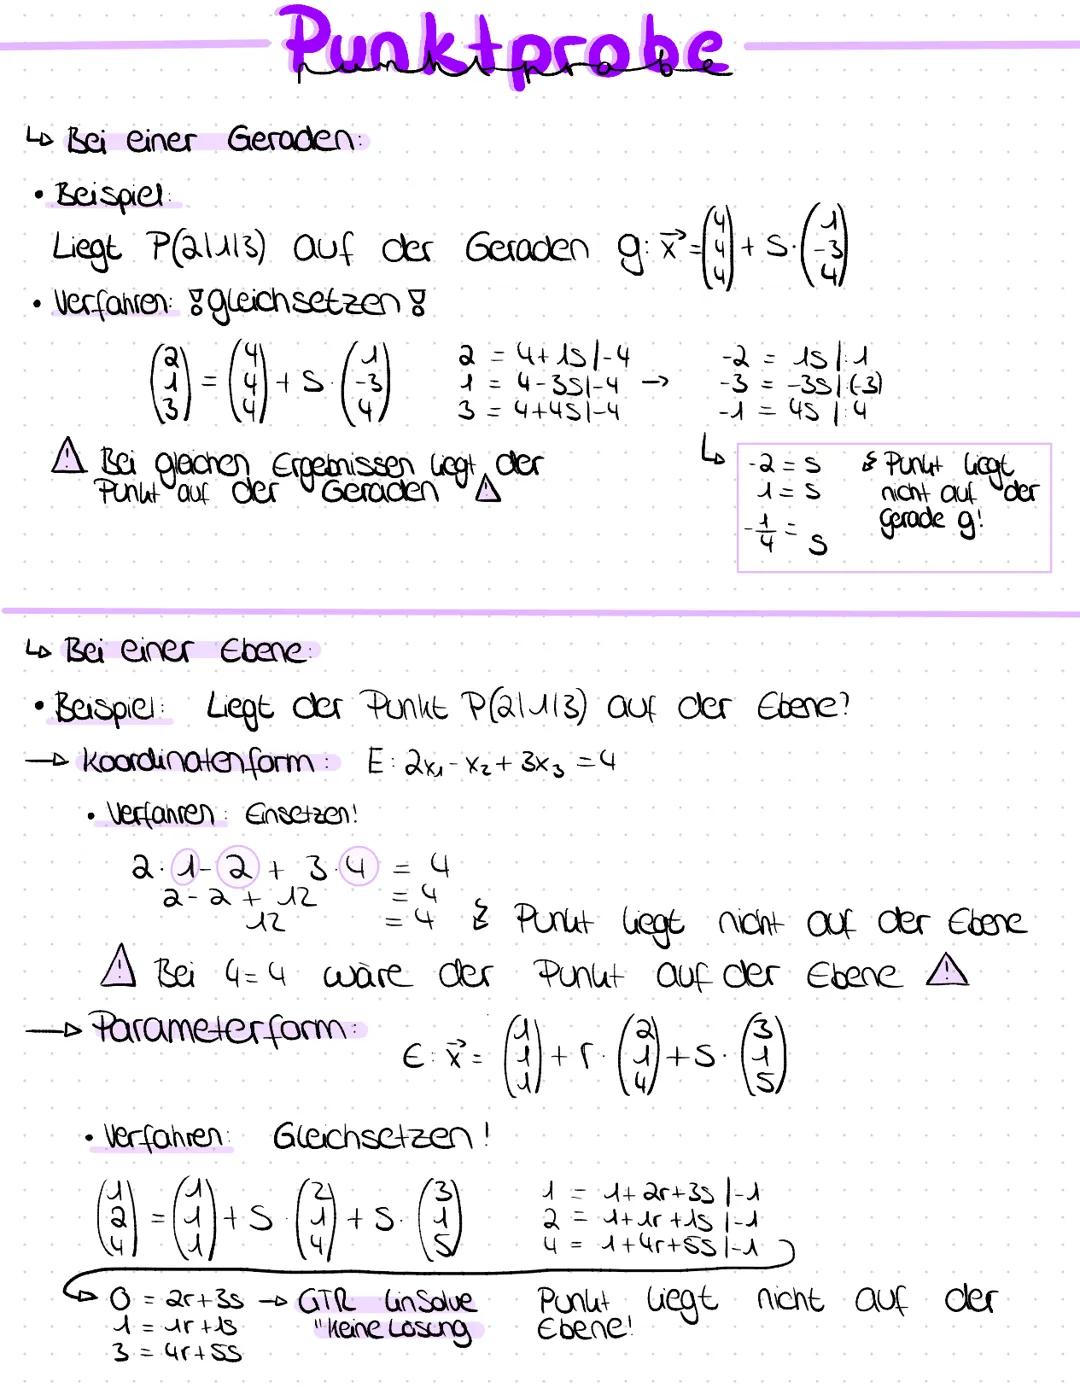 Punktprobe
punktprobe
↳ Bei einer Geraden:
• Beispiel:
Liegt P(2|1|3) auf der Geraden g: x⃗ = (4 4 4) + s · (1 -3 4)
• Verfahren: !gleichsetzen!
(2 1 3) = (4 4 4) + s · (1 -3 4)
2 = 4+1s |-4
1 = 4-3s |-4 →
3 = 4+4s |-4
-2 = 1s |:1
-3 = -3s |:(-3)
-1 = 4s |:4
⚠ Bei gleichen Ergebnissen liegt der
Punkt auf der Geraden ⚠
↳ -2 = s
1 = s
-1/4 = s
↯ Punkt liegt
nicht auf der
Gerade g!
↳ Bei einer Ebene:
• Beispiel: Liegt der Punkt P(2|1|3) auf der Ebene?
→ Koordinatenform: E: 2x₁ - x₂ + 3x₃ = 4
• Verfahren: Einsetzen!
2 · 1 - 2 + 3 · 4 = 4
2 - 2 + 12 = 4
12 = 4 ↯ Punkt liegt nicht auf der Ebene
⚠ Bei 4=4 wäre der Punkt auf der Ebene ⚠
→ Parameterform: E: x⃗ = (1 1 1) + r · (2 1 4) + s · (3 1 5)
• Verfahren: Gleichsetzen!
(1 2 4) = (1 1 1) + s · (2 1 4) + s · (3 1 5)
1 = 1+2r+3s |-1
2 = 1+1r+1s |-1
4 = 1+4r+5s |-1
↳ 0 = 2r+3s → GTR linSolve
1 = 1r+1s "Keine Lösung
3 = 4r+5s
Punkt liegt nicht auf der
Ebene!